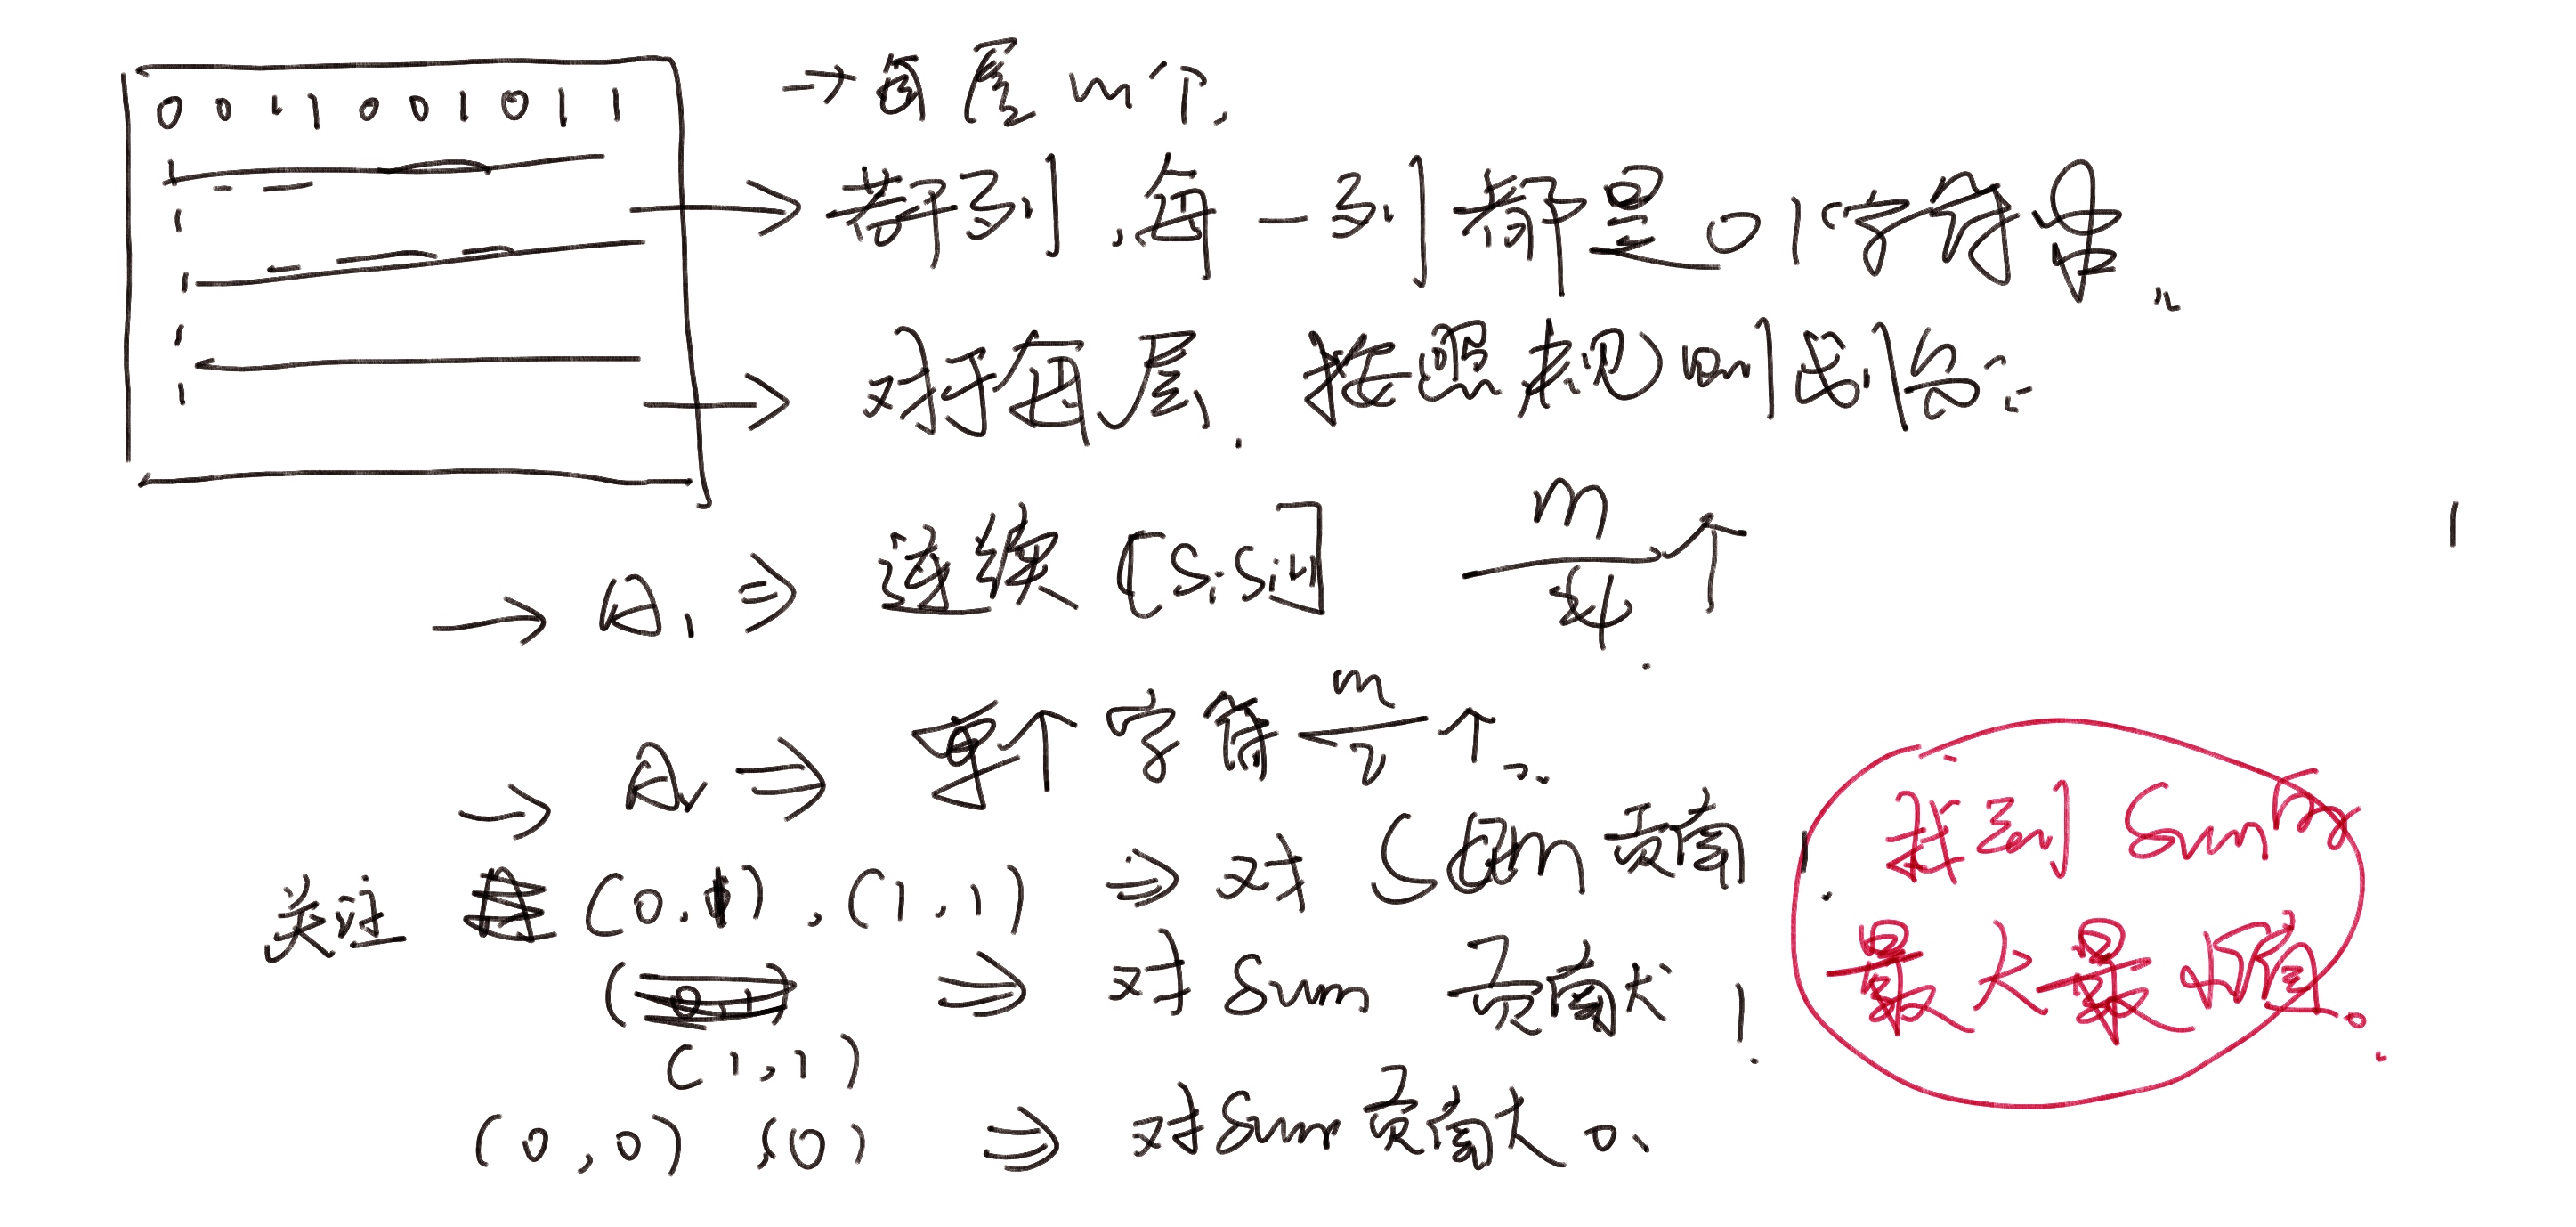 0 0 1 1 0 0 1 0 1 1
→ 每层 m个.
→ 若干列，每一列都是01字符串.
→ 对于每层. 按照规则划分:
→ A₁ ⇒ 连续 [SᵢSᵢ₊₁] m/4 个
→ A₂ ⇒ 单个字符 m/2 个.
关注 (0,1), (1,1) ⇒ 对 Sum 贡献 1.
⇒ 对 Sum 贡献 1.
(1,1)
(0,0) (0) ⇒ 对Sum贡献 0.
找到 Sum的
最大最小值。